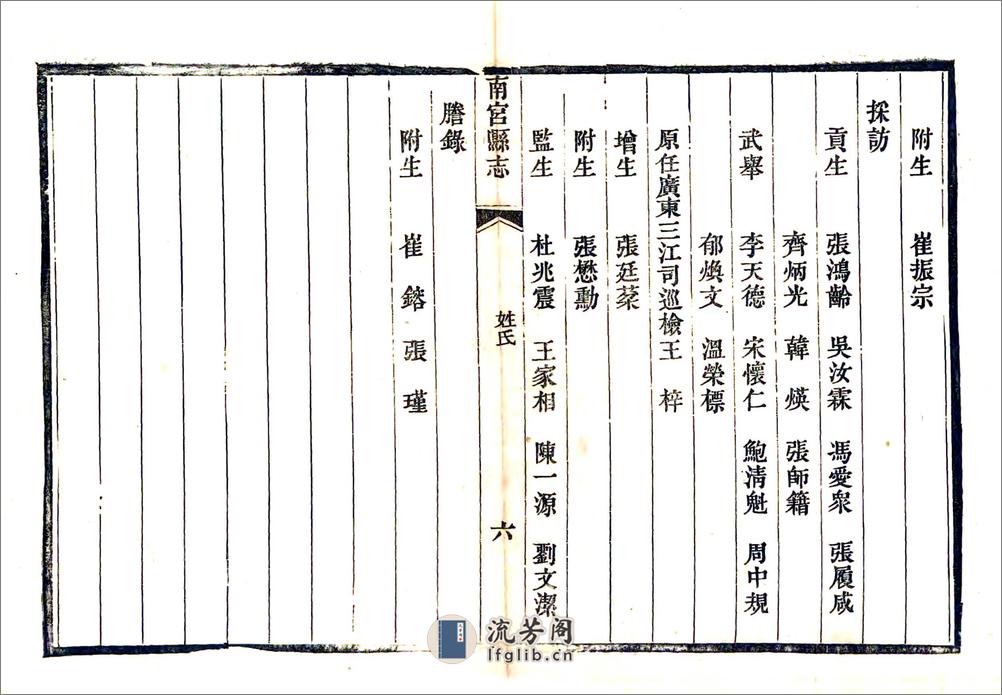 附生　崔振宗
採訪
貢生　張鴻齡　吳汝霖　馮愛衆　張履咸
齊炳光　韓煐　張師籍
武舉　李天德　宋懷仁　鮑淸魁　周中規
郁煥文　溫榮標
原任廣東三江司巡檢王梓
增生　張廷棻
附生　張懋勳
監生　杜兆震　王家相　陳一源　劉文潔
南宮縣志　姓氏　六
謄錄
附生　崔鎔　張瑾
流芳阁
lfglib.cn